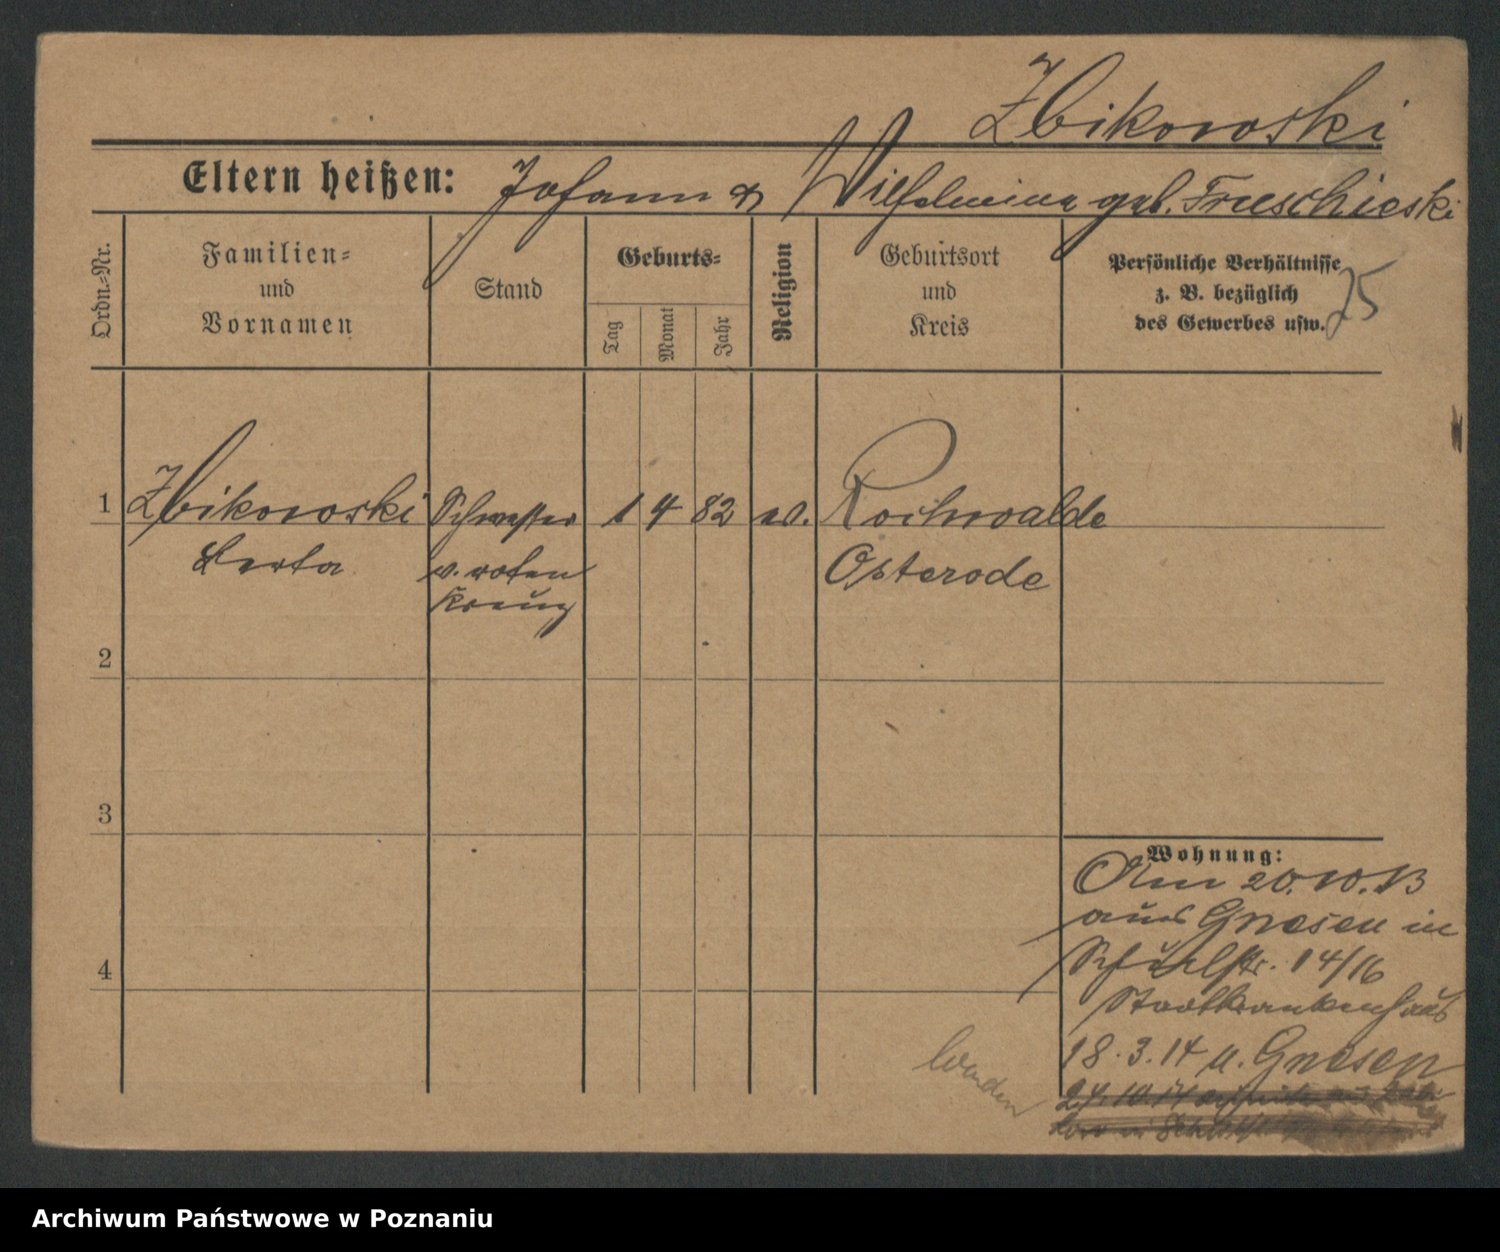 Zbikowski
Eltern heißen: Johann & Wilhelmine geb. Trueschieski
Ordn.-Nr.
Familien-
und
Vornamen
Stand
Geburts-
Tag
Monat
Jahr
Religion
Geburtsort
und
Kreis
Persönliche Verhältnisse
z. B. bezüglich
des Gewerbes usw.
25
1 Zbikowski Schwester 1 4 82 ev. Rochwalde
Berta v. roten Osterode
Kreuz
2
3
4
Wohnung:
Am 20.10.13
aus Gnesen in
Schulstr. 14/16
Stadtkrankenhaus
18.3.14 n. Gnesen
27.10.14